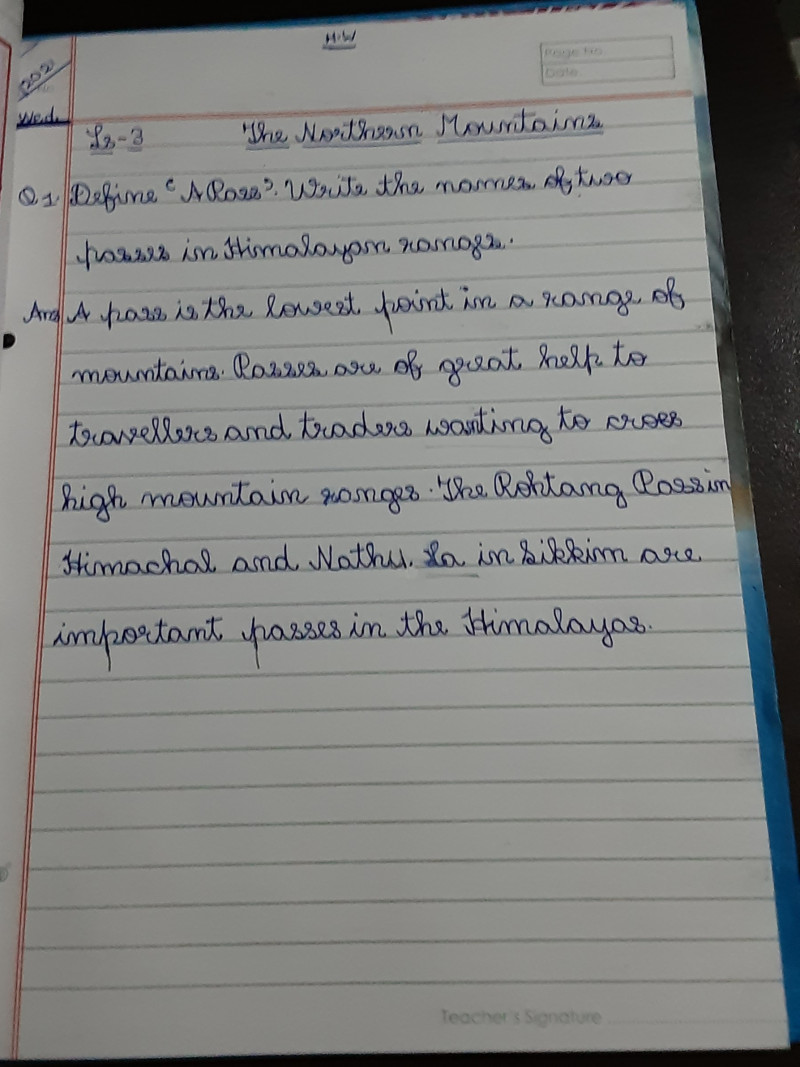 H.W
Page No.
Date
202
Wed.
Ls-3 The Northern Mountains
Q.1. Define 'A Pass'. Write the names of two
passes in Himalayan ranges.
Ans A pass is the lowest point in a range of
mountains. Passes are of great help to
travellers and traders wanting to cross
high mountain ranges. The Rohtang Pass in
Himachal and Nathu. La in Sikkim are
important passes in the Himalayas.
Teacher's Signature